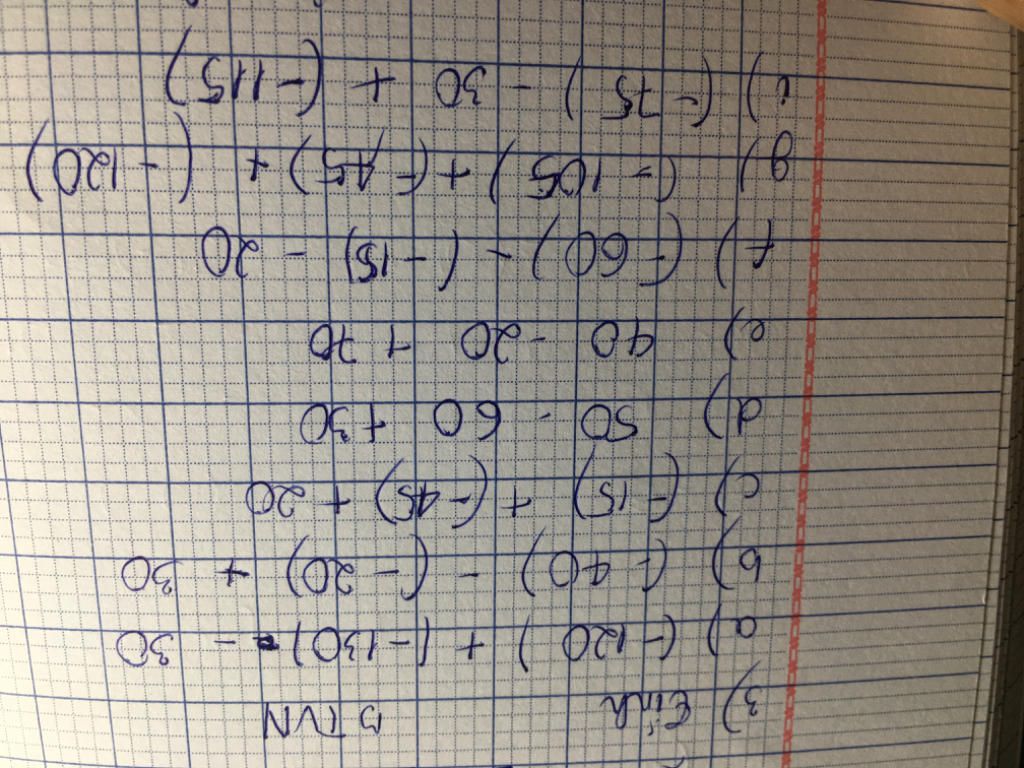 3) Tính BTVN
a) (-120) + (-130) - 30
b) (-40) - (-20) + 30
c) (-15) + (-45) + 20
d) 50 - 60 + 30
e) 40 - 20 + 70
f) (-60) - (-15) - 20
g) (-105) + (-45) + (-120)
i) (-75) - 30 + (-115)